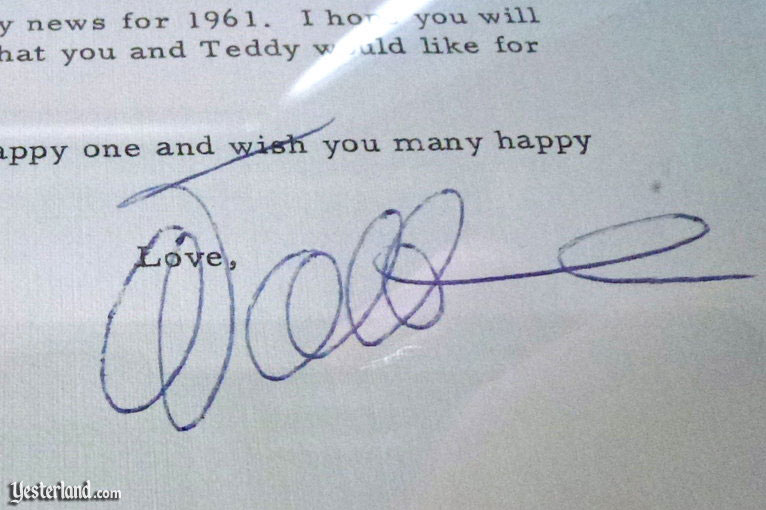 y news for 1961. I hope you will
hat you and Teddy would like for
appy one and wish you many happy
Love,
Yesterland.com